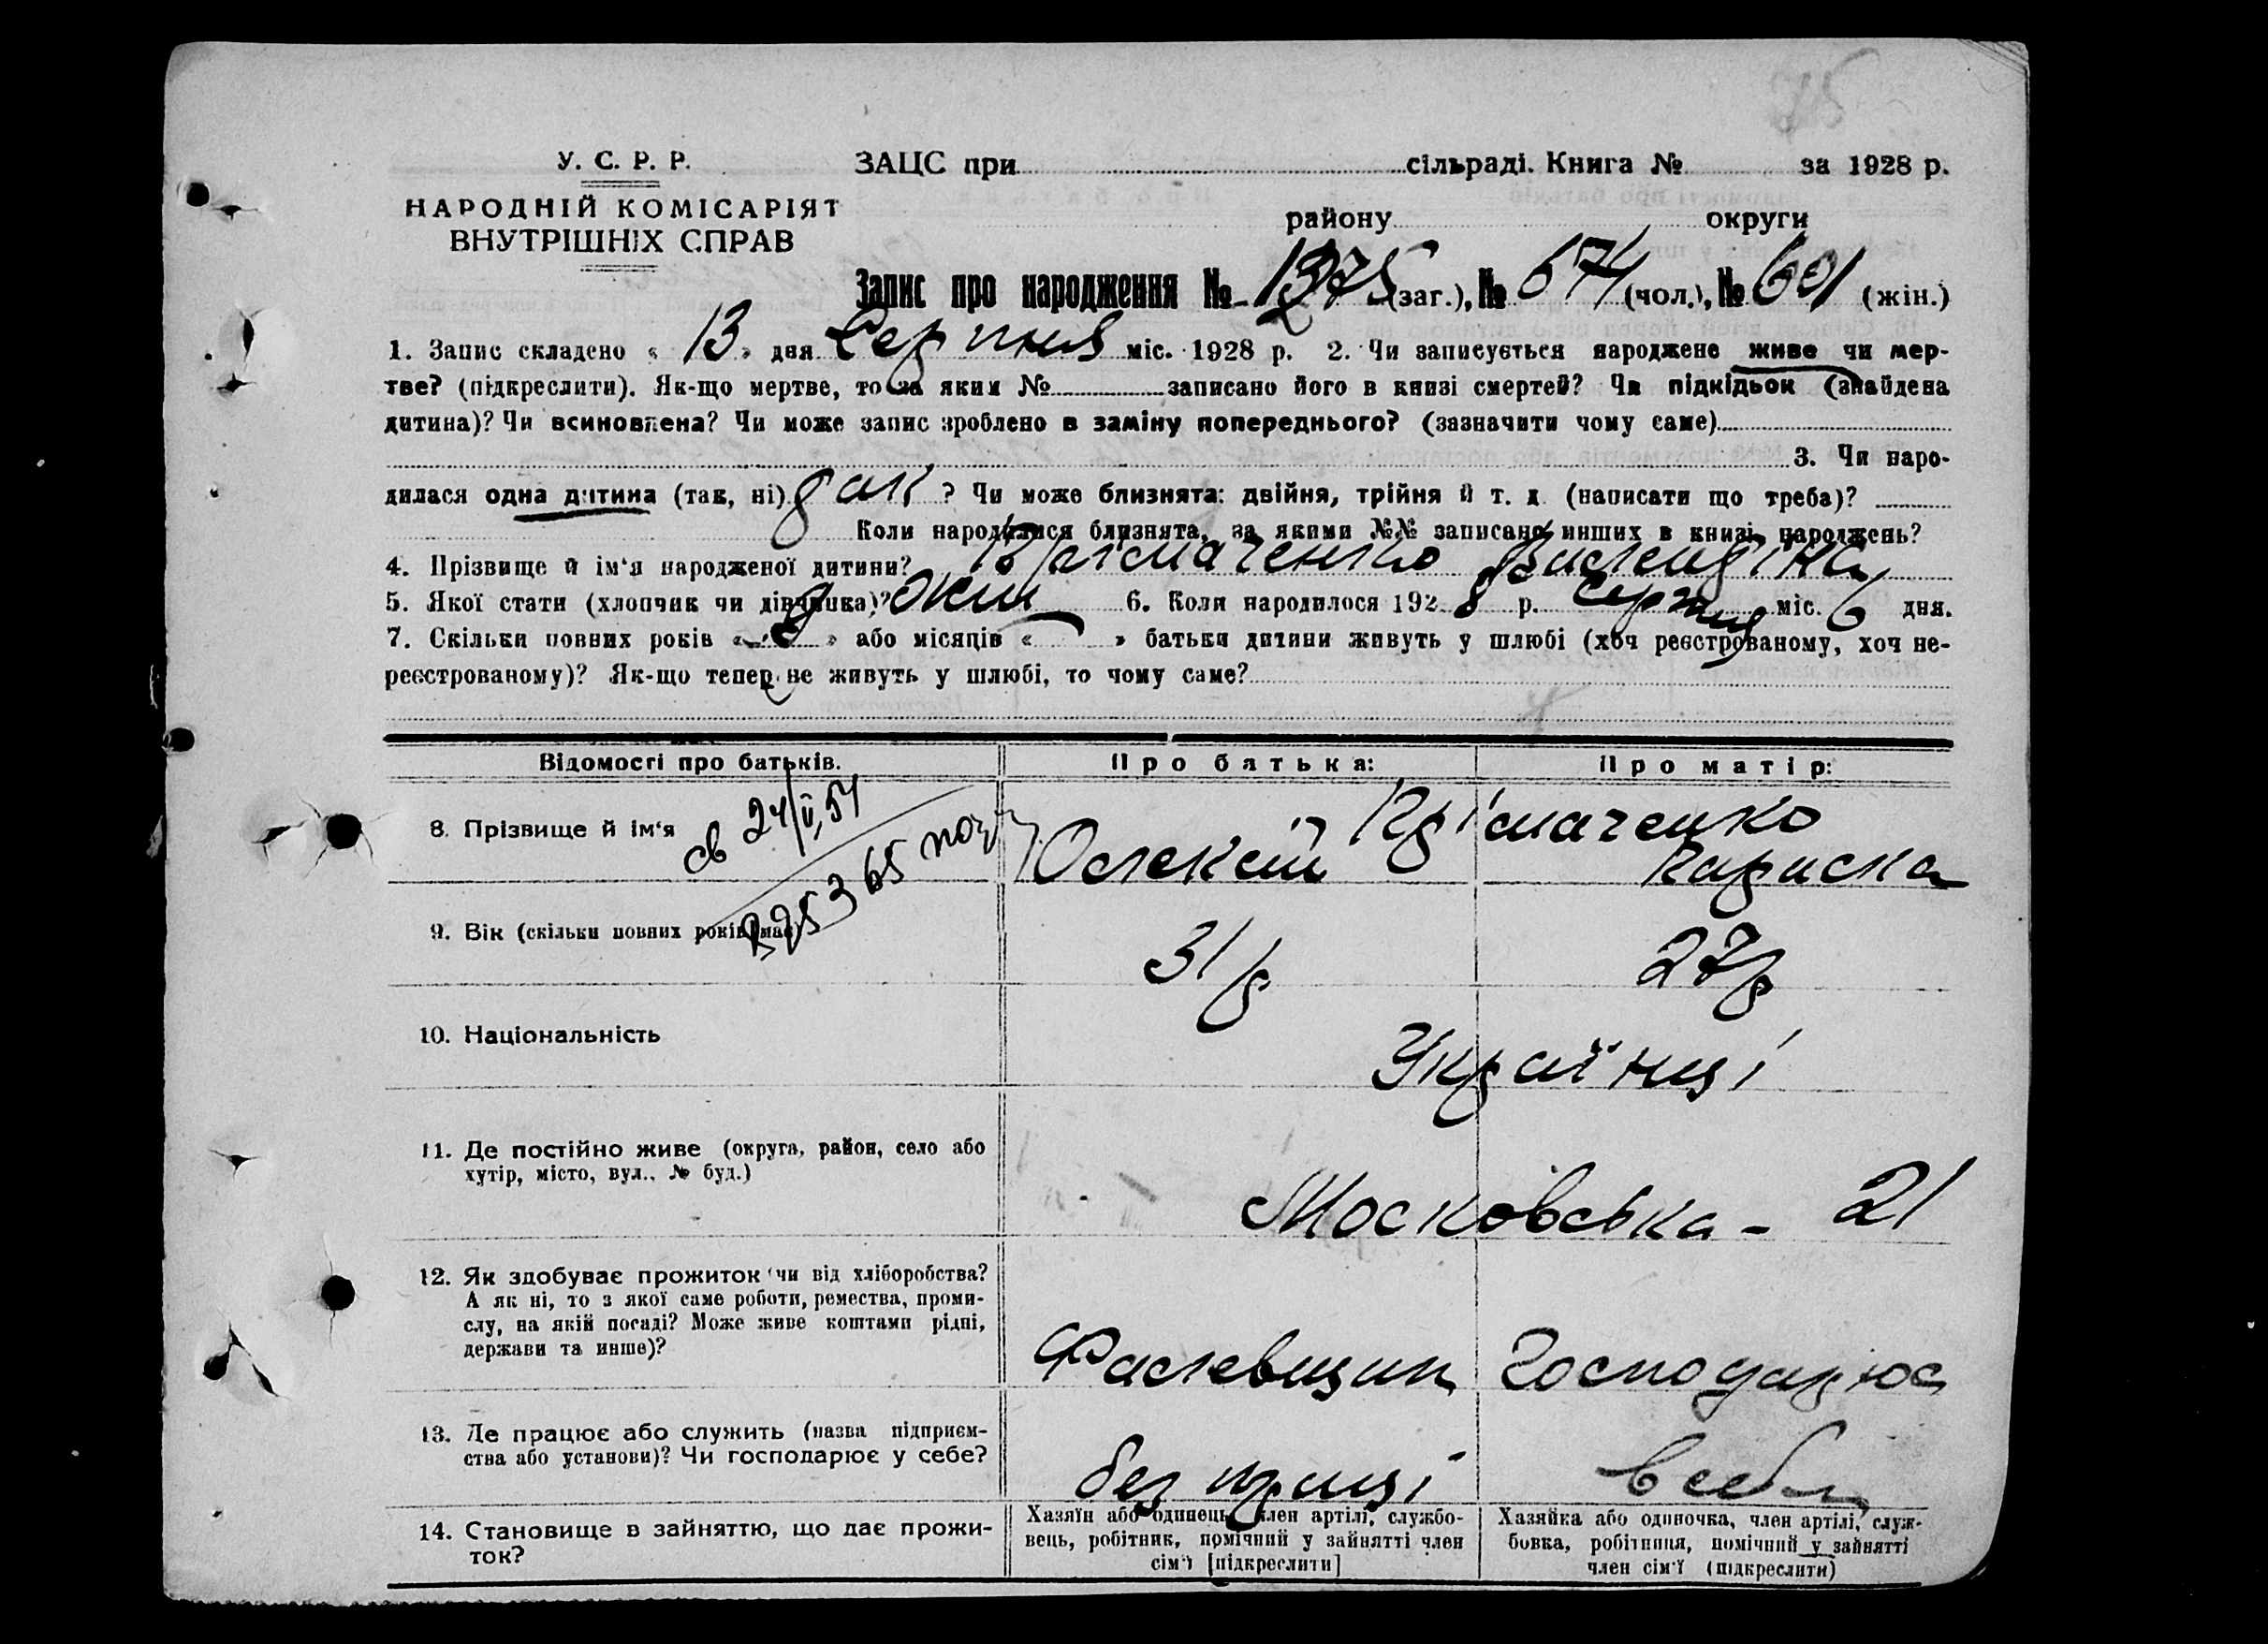 У. С. Р. Р.
НАРОДНІЙ КОМІСАРІЯТ
ВНУТРІШНІХ СПРАВ
ЗАЦС при сільраді. Книга № за 1928 р.
району округи
Запис про народження № 1375 (заг.), № 674 (чол.), № 601 (жін.)
1. Запис складено « 13 » дня Серпня міс. 1928 р. 2. Чи записується народжене живе чи мер-
тве? (підкреслити). Як-що мертве, то за яким № записано його в книзі смертей? Чи підкідьок (знайдена
дитина)? Чи всиновлена? Чи може запис зроблено в заміну попереднього? (зазначити чому саме)
3. Чи наро-
дилася одна дитина (так, ні) ? Чи може близнята: двійня, трійня й т. д. (написати що треба)?
Коли народилися близнята, за якими №№ записано инших в книзі народжень?
4. Прізвище й ім‘я народженої дитини?
5. Якої стати (хлопчик чи дівчинка)? жін 6. Коли народилося 1928 р. серпня міс. 6 дня.
7. Скільки повних років « » або місяців « » батьки дитини живуть у шлюбі (хоч реєстрованому, хоч не-
реєстрованому)? Як-що тепер не живуть у шлюбі, то чому саме?
Відомості про батьків. Про батька: Про матір:
св 24/II 54
8. Прізвище й ім‘я Олексій
9. Вік (скільки повних років має) 31 р 27 р
10. Національність Українці
11. Де постійно живе (округа, район, село або
хутір, місто, вул., № буд.)
Московська - 21
12. Як здобуває прожиток чи від хліборобства?
А як ні, то з якої саме роботи, ремества, проми-
слу, на якій посаді? Може живе коштами рідні,
держави та инше)?
13. Де працює або служить (назва підприєм-
ства або установи)? Чи господарює у себе?
без праці
14. Становище в зайняттю, що дає прожи-
ток?
Хазяїн або одинець, член артілі, службо-
вець, робітник, помічний у зайнятті член
сім‘ї [підкреслити]
Хазяйка або одиночка, член артілі, служ-
бовка, робітниця, помічний у зайнятті
член сім‘ї (підкреслити)